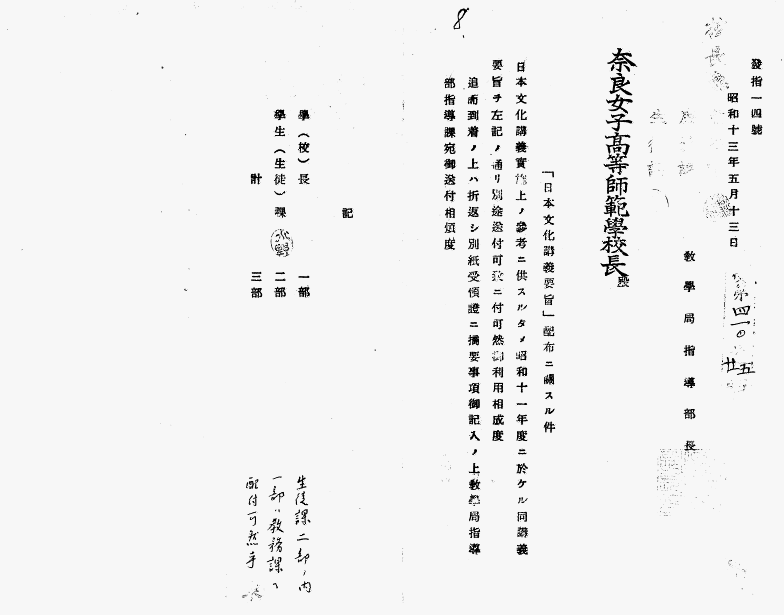 發指一四號
昭和十三年五月十三日
敎學局指導部長
奈良女子高等師範學校長殿
「日本文化講義要旨」配布ニ關スル件
日本文化講義實施上ノ參考ニ供スルタメ昭和十一年度ニ於ケル同講義
要旨ヲ左記ノ通リ別途送付可致ニ付可然御利用相成度
追而到着ノ上ハ折返シ別紙受領證ニ摘要事項御記入ノ上敎學局指導
部指導課宛御送付相煩度
8.
記
學(校)長 一部
學生(生徒)課 水野 二部
計 三部
第四一〇
五
廿
生徒課二部ノ內
一部ハ敎務課ヘ
配付可然乎